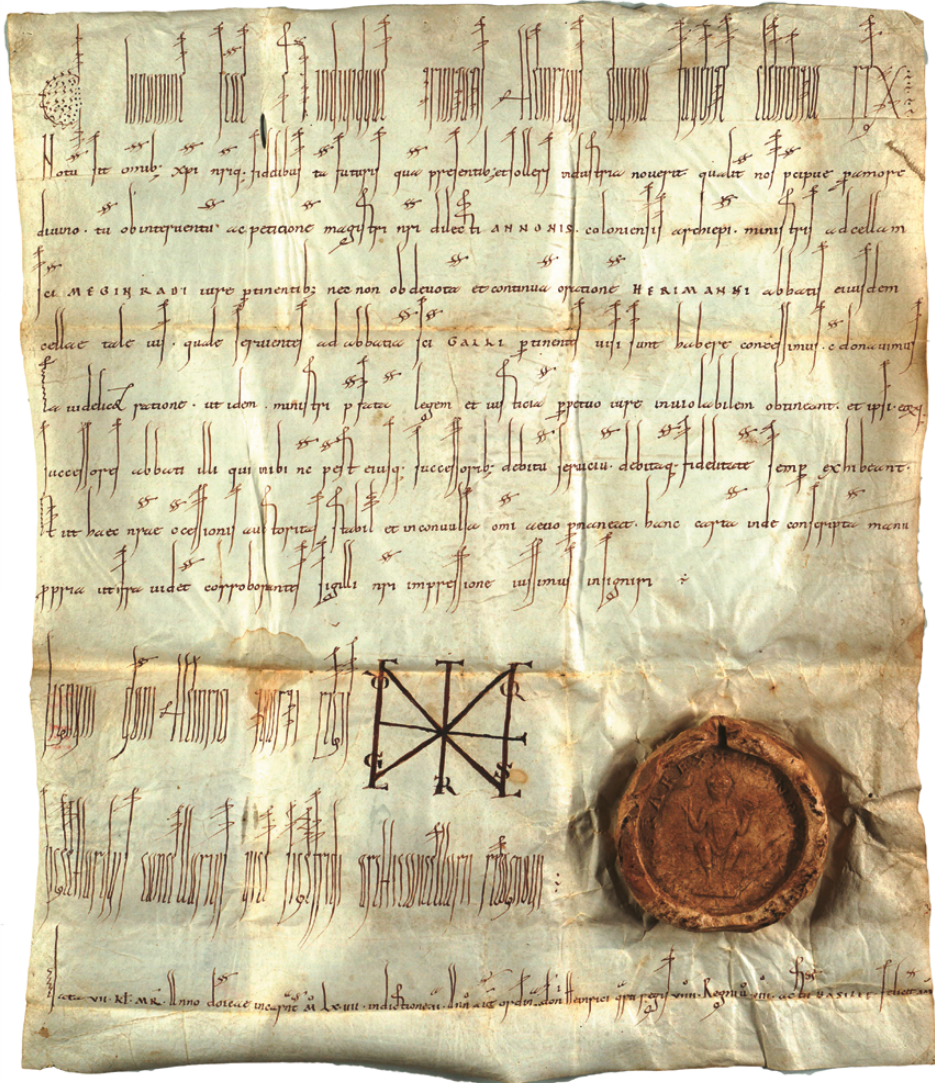 In nomine sanctę et individuę trinitatis Heinricus divina favente clementia rex
Notū sit omib; xpi nrisq; fidelibus tā futuris quā presentib; et sollers industria noverit qualit nos pcipue p amorē
divinū · tū ob interventū ac peticionē magistri nri dilecti ANNONIS · coloniensis archiepi · ministris ad cellam
sci MEGINRADI iure ptinentib; nec non ob devotā et continuā orationē HERIMANNI abbatis eiusdem
cellae tale ius · quale servientes ad abbatiā sci GALLI ptinentes visi sunt habere concessimus · & donavimus
Ea videlicet ratione · ut idem · ministri pfatā legem et iusticiā ppetuo iure inviolabilem obtineant · et ipsi · eorq;
successores abbati illi qui sibi nc pest eiusq; successorib; debitū serviciū · debitāq; fidelitatē semp exhibeant ·
Et ut haec nrae ccessionis auctoritas stabil et inconvulsa omi aevo pmaneat · hanc cartā inde conscriptā manu
ppria ut infra videt corroborantes sigilli nri impressione iussimus insigniri
Signum domni Heinrici quarti regis
Sigehardus cancellarius vice Sigefridi archicancellarii recognovi
Data VII · KL · MR · Anno dnicae incarnt M LX IIII · indictione II · Ann aut ordin don Heinrici qrti regis VIIII · Regni v IIII · actū BASILEE felicit am